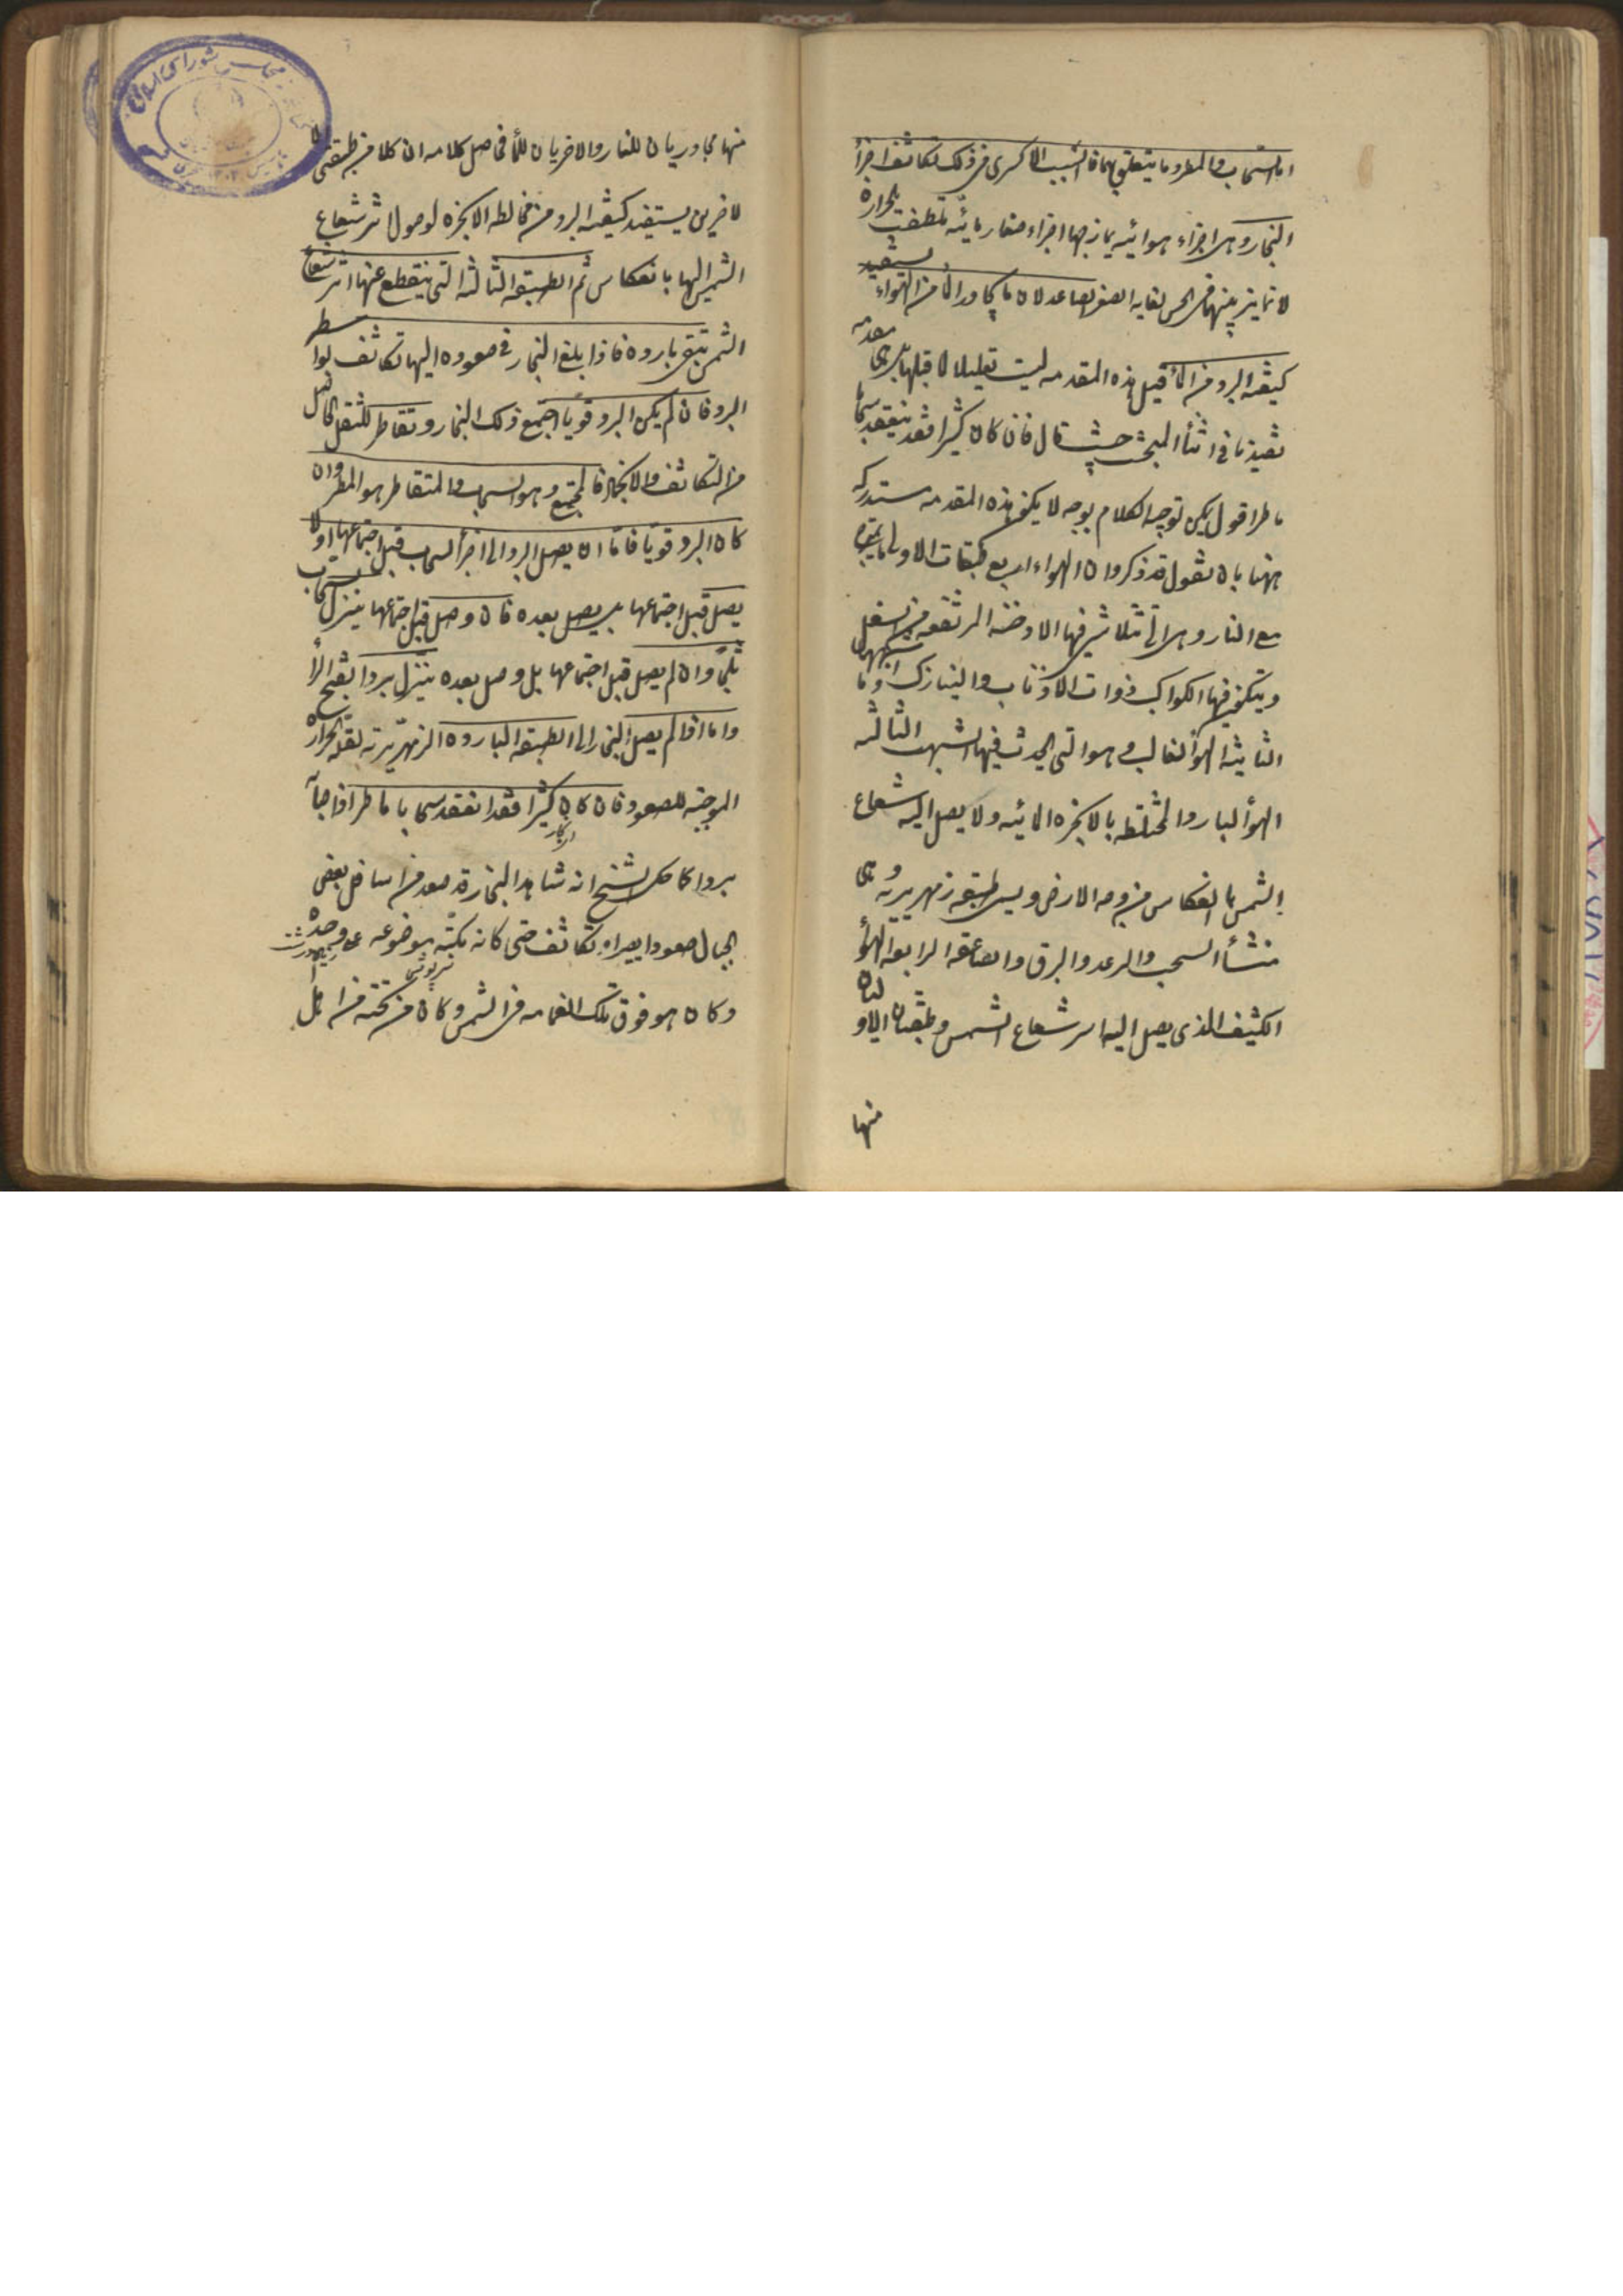 اما السحاب والمطر وما يتعلق بهما فالسبب الاكثرى فى ذلك تكاثف اجزاء
البخار وهى اجزاء هوائيه يمازجها اجزاء صغار مائيه تلطفت بحرارة
لا تمايز بينهما فى الحس لغايه الصغر لصاعد لان ما يجاور الماء من الهواء يستفيد
كيفيه البرد من الماء قيل هذه المقدمه ليست تعليلا لما قبلها بل هى مقدمه
تفيدنا فى اثناء المبحث حيث قال فان كان كثيرا فقد ينعقد سحابا
ماطرا اقول يمكن توجيه الكلام بوجه لا يكون هذه المقدمه مستدركه
ههنا بان نقول قد ذكروا ان الهواء اربع طبقات الاولى ما يمتزج
مع النار وهى التى تتلاشى فيها الادخنه المرتفعه من السفل
ويتكون فيها الكواكب ذوات الاذناب والنيازك وما اشبهها
الثانيه الهواء الغالب وهو التى يحدث فيها الشهب الثالثه
الهواء البارد المختلطه بالابخره المائيه ولا يصل اليه شعاع
الشمس بالانعكاس من وجه الارض ويسمى طبقه زمهريريه وهى
منشأ السحب والرعد والبرق والصاعقه الرابعه الهواء
الكثيف الذى يصل اليه اثر شعاع الشمس وطبقتان الاوليان
منها
منها مجاوريان للنار والاخريان للماء فحاصل كلامه ان كلا من طبقتى
الاخرين يستفيد كيفيه البرد من مخالطه الابخره لوصول اثر شعاع
الشمس اليها بانعكاس ثم الطبقه الثالثه التى ينقطع عنها اثر شعاع
الشمس تبقى بارده فاذا بلغ البخار فى صعوده اليها تكاثف بواسطه
البرد فان لم يكن البرد قويا اجتمع ذلك البخار وتقاطر للثقل الحاصل
من التكاثف والانجماد فالمجتمع وهو السحاب والمتقاطر هو المطر وان
كان البرد قويا فاما ان يصل البرد الى اجزاء السحاب قبل اجتماعها او لا
يصل قبل اجتماعها بل يصل بعده فان وصل قبل اجتماعها ينزل السحاب
ثلجا وان لم يصل قبل اجتماعها بل وصل بعده ينزل بردا بفتح الراء
واما اذا لم يصل البخار الى الطبقه البارده الزمهريريه لقله الحرارة
الموجبه للصعود فان كان كثيرا فقد انعقد سحابا ماطرا اذا اصابه
بردا كما حكى الشيخ انه شاهد البخار قد صعد من اسافل بعض
الجبال صعودا يسيرا وتكاثف حتى كانه مكبه موضوعه على وهده
وكان هو فوق تلك الغمامه فى الشمس وكان من تحته من اهل